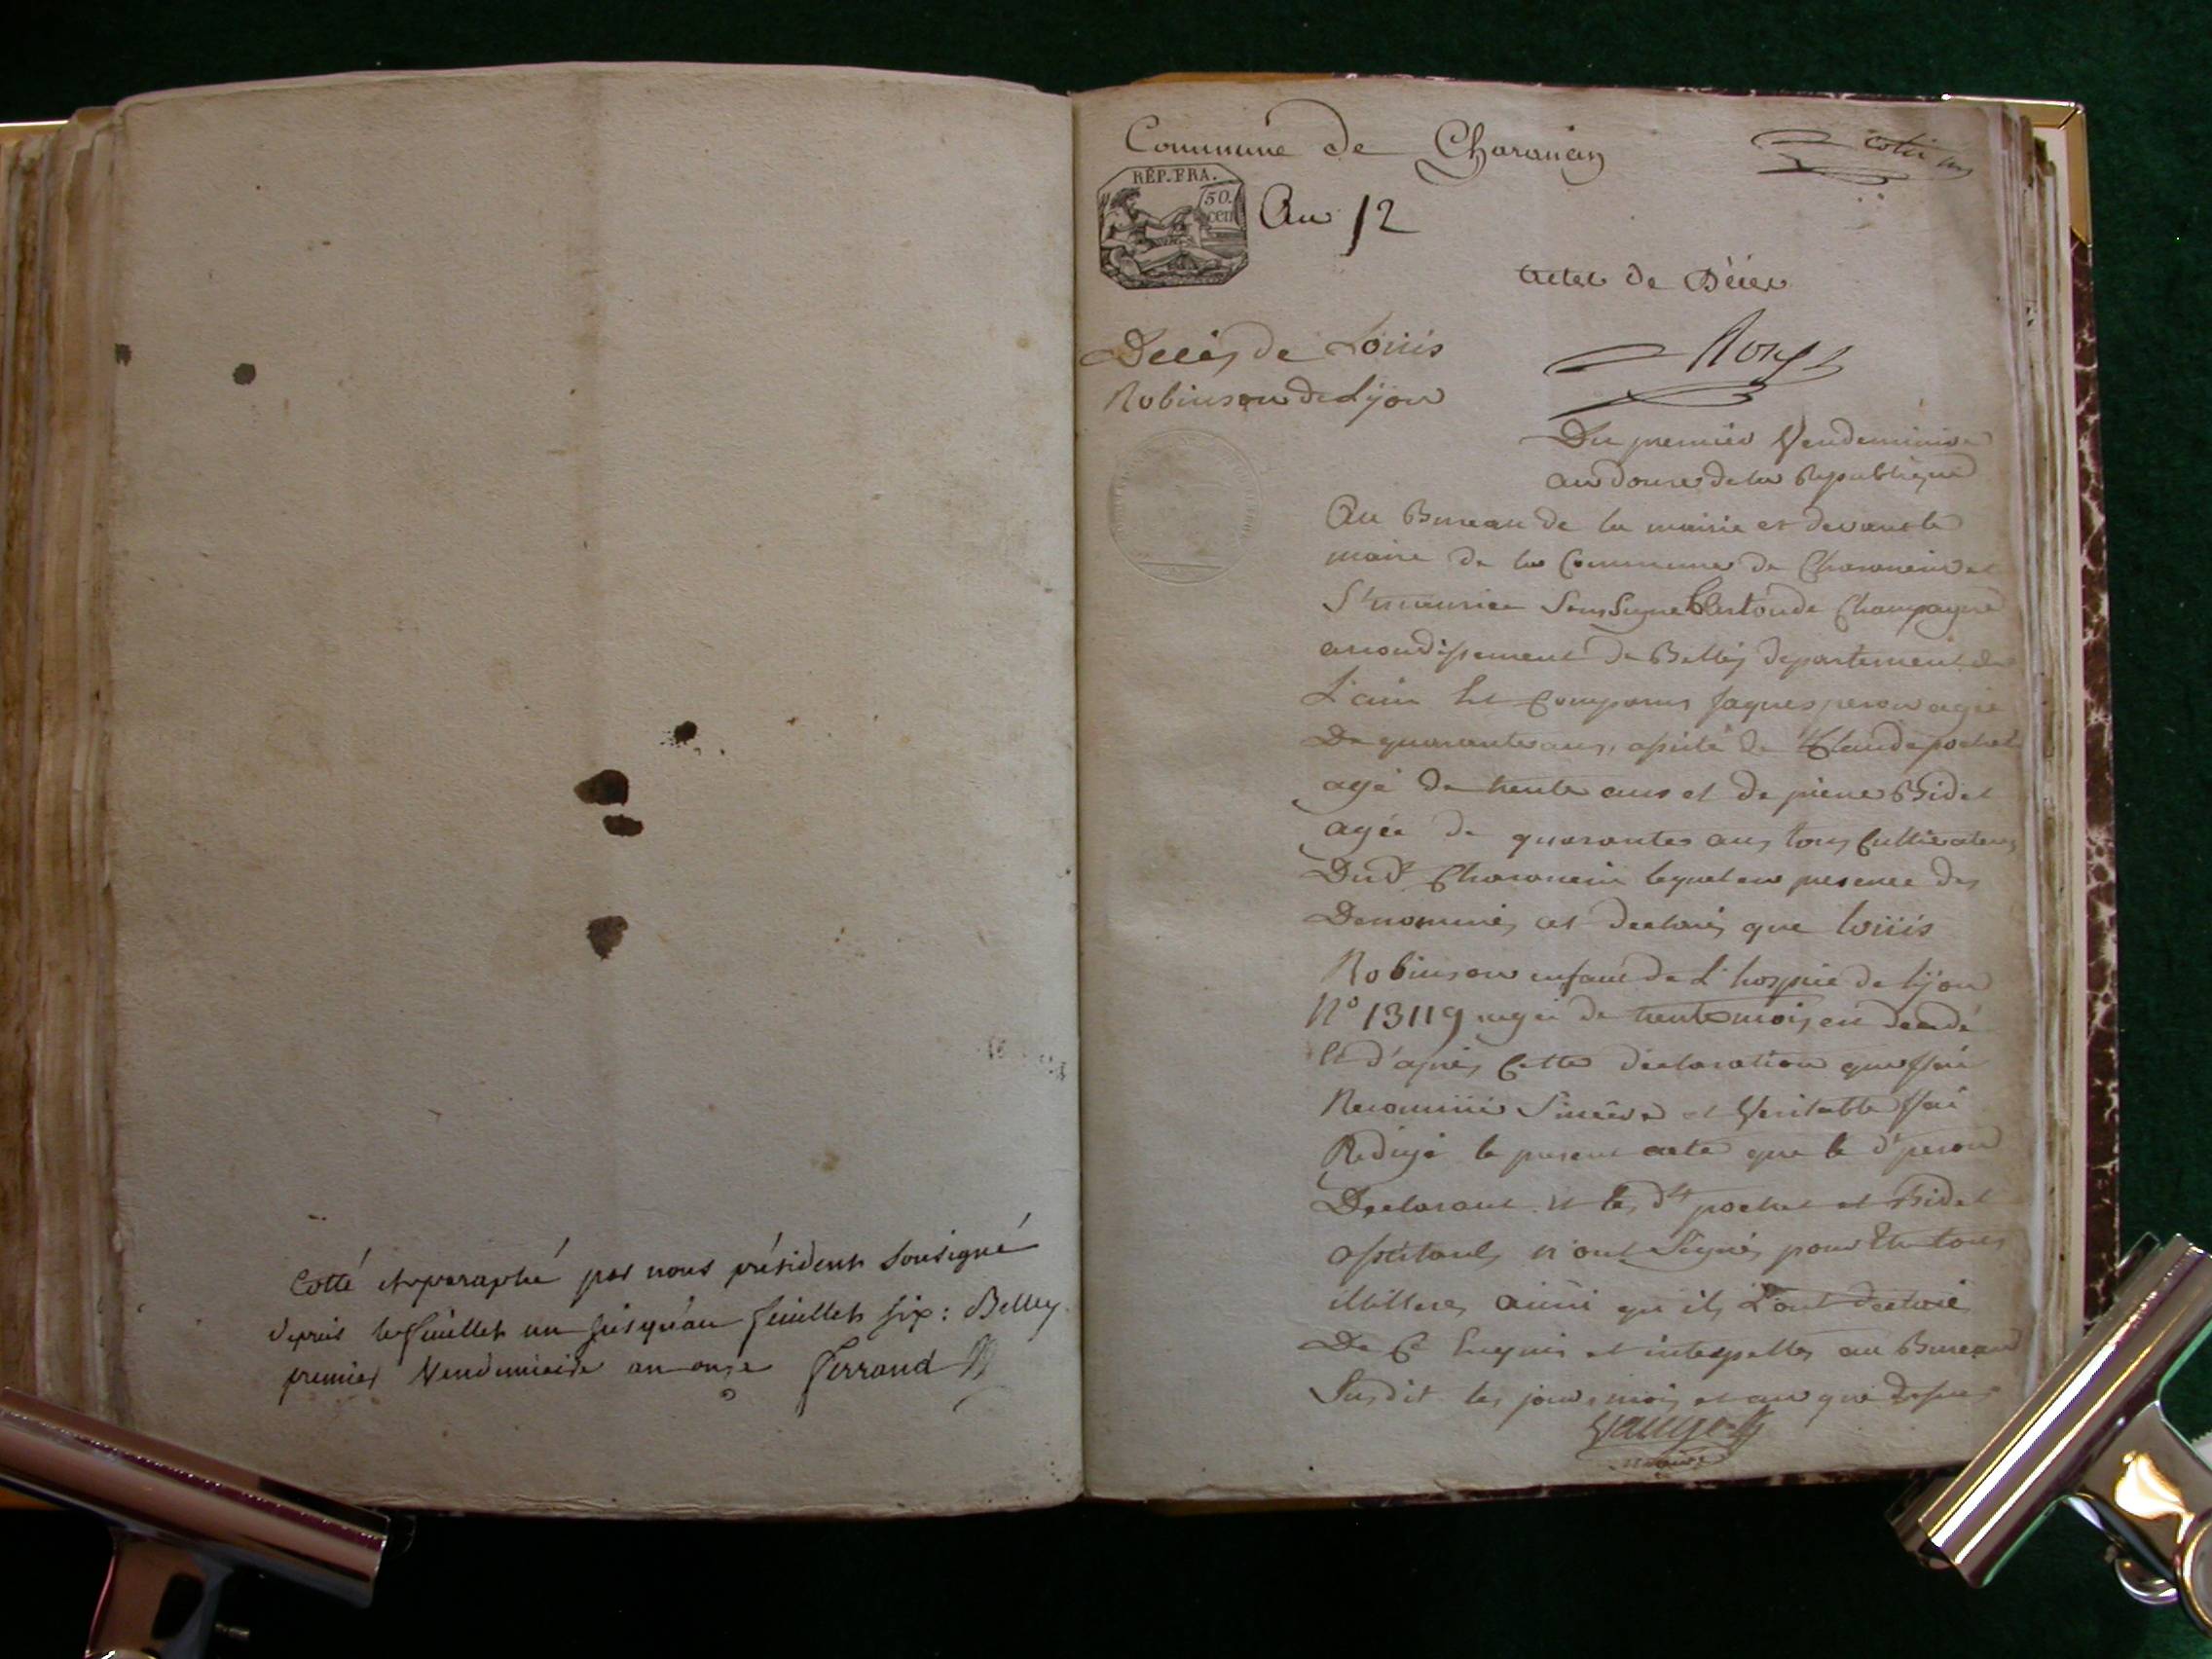 Cotté et paraphé par nous président sousigné
depuis le feuillet un jusqu'au feuillet six: Belley
premier Vendemiaire an onze Ferrand
Commune de
RÉP. FRA.
50. cen
An 12
actes de Décès
Decès de Loüis
Robinson de Lÿon
Du premier Vendemiaire
an douze de la Republique
Au Bureau de la mairie et devant le
maire de la Commune de Charancin et
St maurice Soussigné de Champagne
arrondissement de Belleÿ departement de
L'ain Est Comparus Jaques peron agée
De quarante ans, assisté de Claude pochet
agé de trente ans et de pierre Bidet
agée de quarantes ans tous Cultivateurs
Dud. Charancin lequel en presence des
Denommés at declarés que loüis
Robinson enfant de L'hospice de lÿon
N° 13119 agée de trente mois est decedé
Et d'après Cette declaration que J'ai
Reconnüe Sincère et Veritable J'ai
Redigé le present acte que le dt peron
Declarant et les dts pochet et Bidet
assistants n'ont Signés pour Etre tous
illitteres ainsi qu'ils L'ont declaré
De Ce Enquis et interpellés au Bureau
Susdit les jour, mois et an que dessus
maire